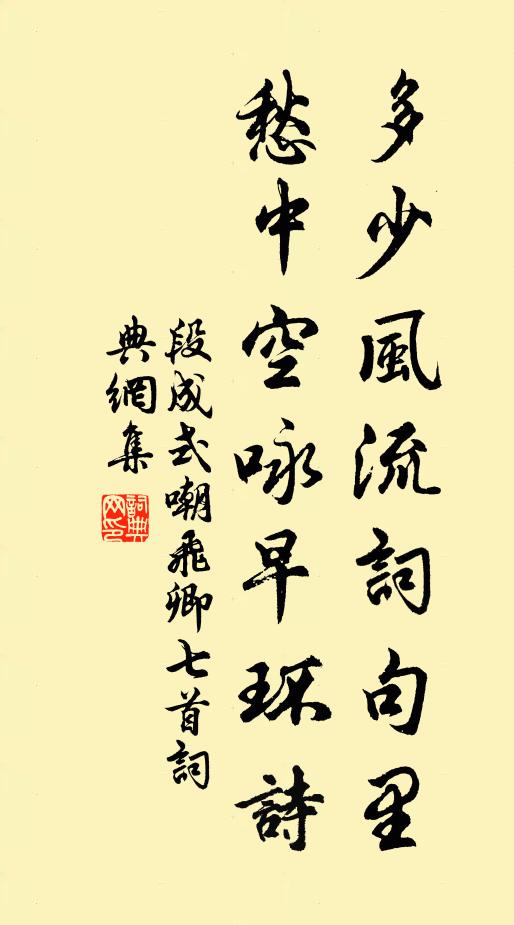 多少風流詞句里
愁中空咏早环詩
段成式嘲飛卿七首詞
典網集
詞典
网印